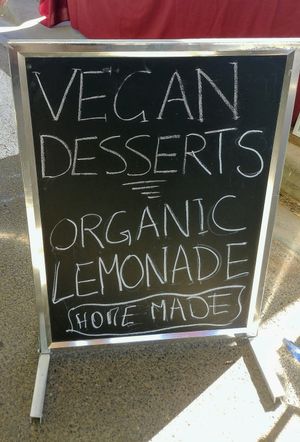 VEGAN
DESSERTS
ORGANIC
LEMONADE
HOME MADE